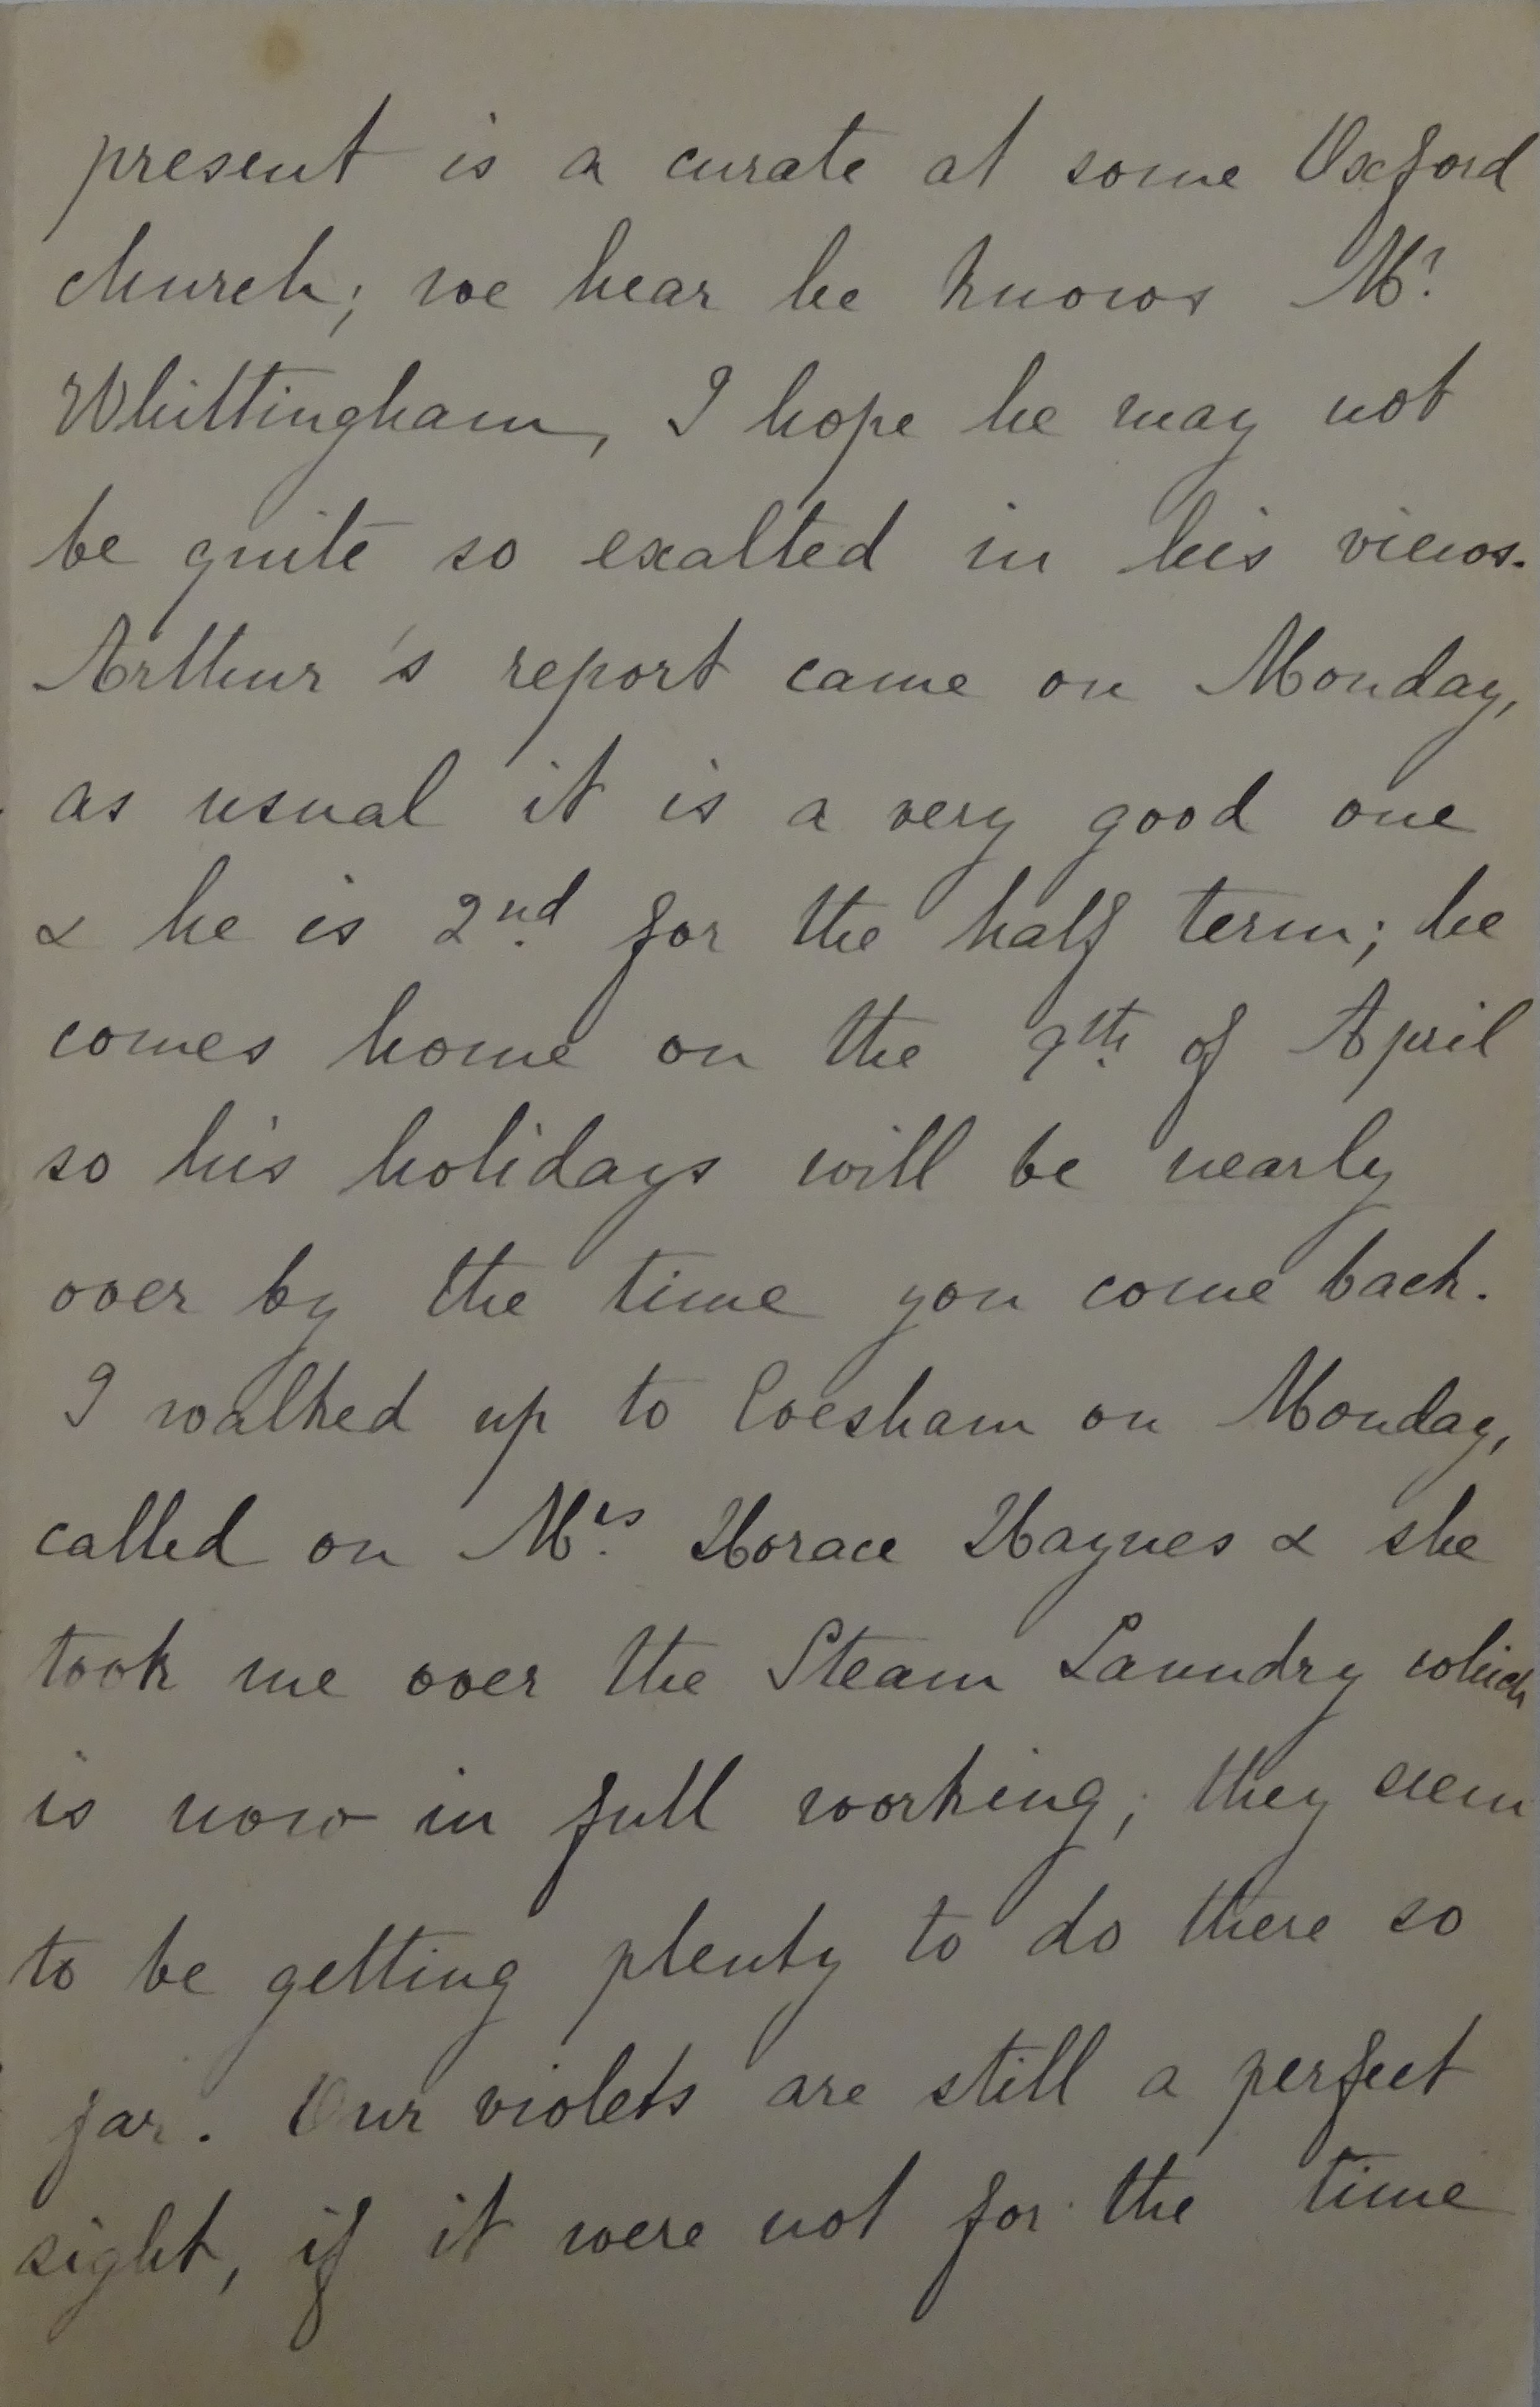 present is a curate at some Oxford
church; we hear he knows Mr.
Whittingham, I hope he may not
be quite so exalted in his views.
Arthur's report came on Monday,
as usual it is a very good one
& he is 2nd for the half term; he
comes home on the 9th of April
so his holidays will be nearly
over by the time you come back.
I walked up to Evesham on Monday,
called on Mrs. Horace Haynes & she
took me over the Steam Laundry which
is now in full working; they seem
to be getting plenty to do there so
far. Our violets are still a perfect
sight, if it were not for the time